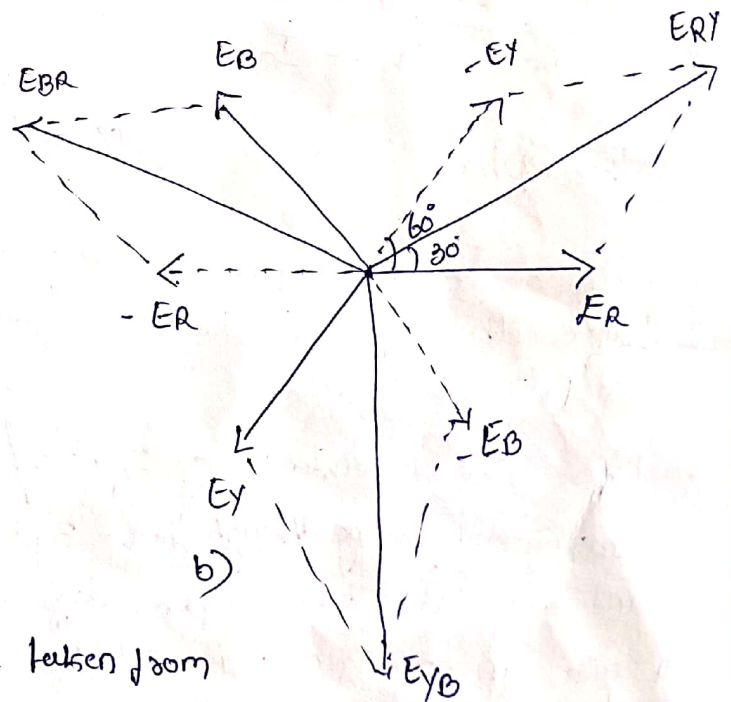 ERY
EB
-EY
EBR
60°
30°
- ER
ER
-EB
EY
b)
taken from
EYB